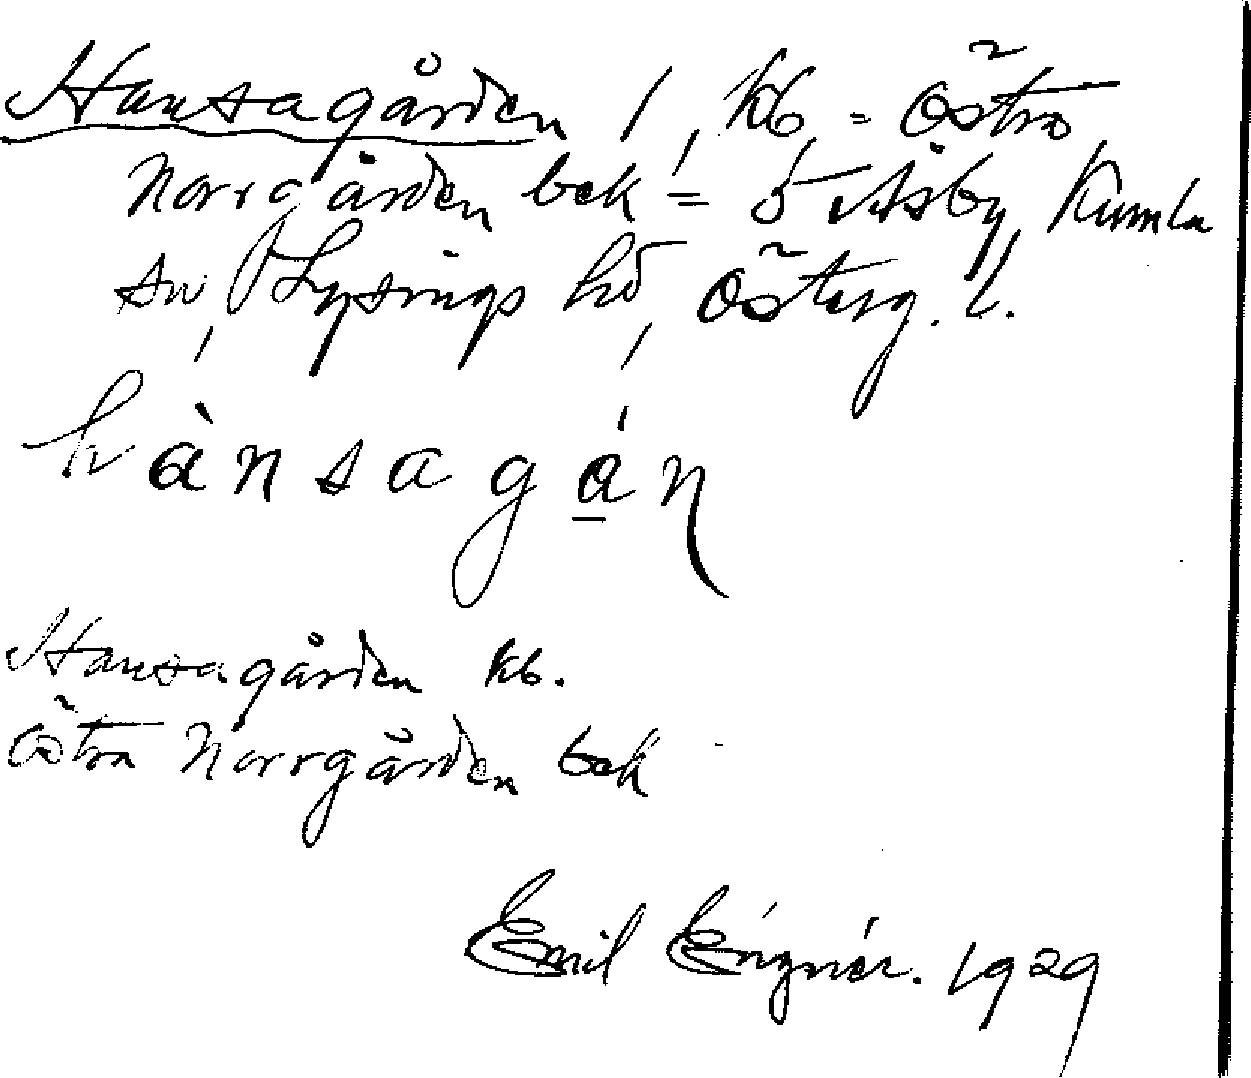 Hansagården 1, kb = Östra
Norrgården bek = 5 Åsby, Kumla
sn, Lysings hd, Österg. l.
hànsagán
Hansagården kb.
Östra Norrgården bek
Emil Eignér. 1929